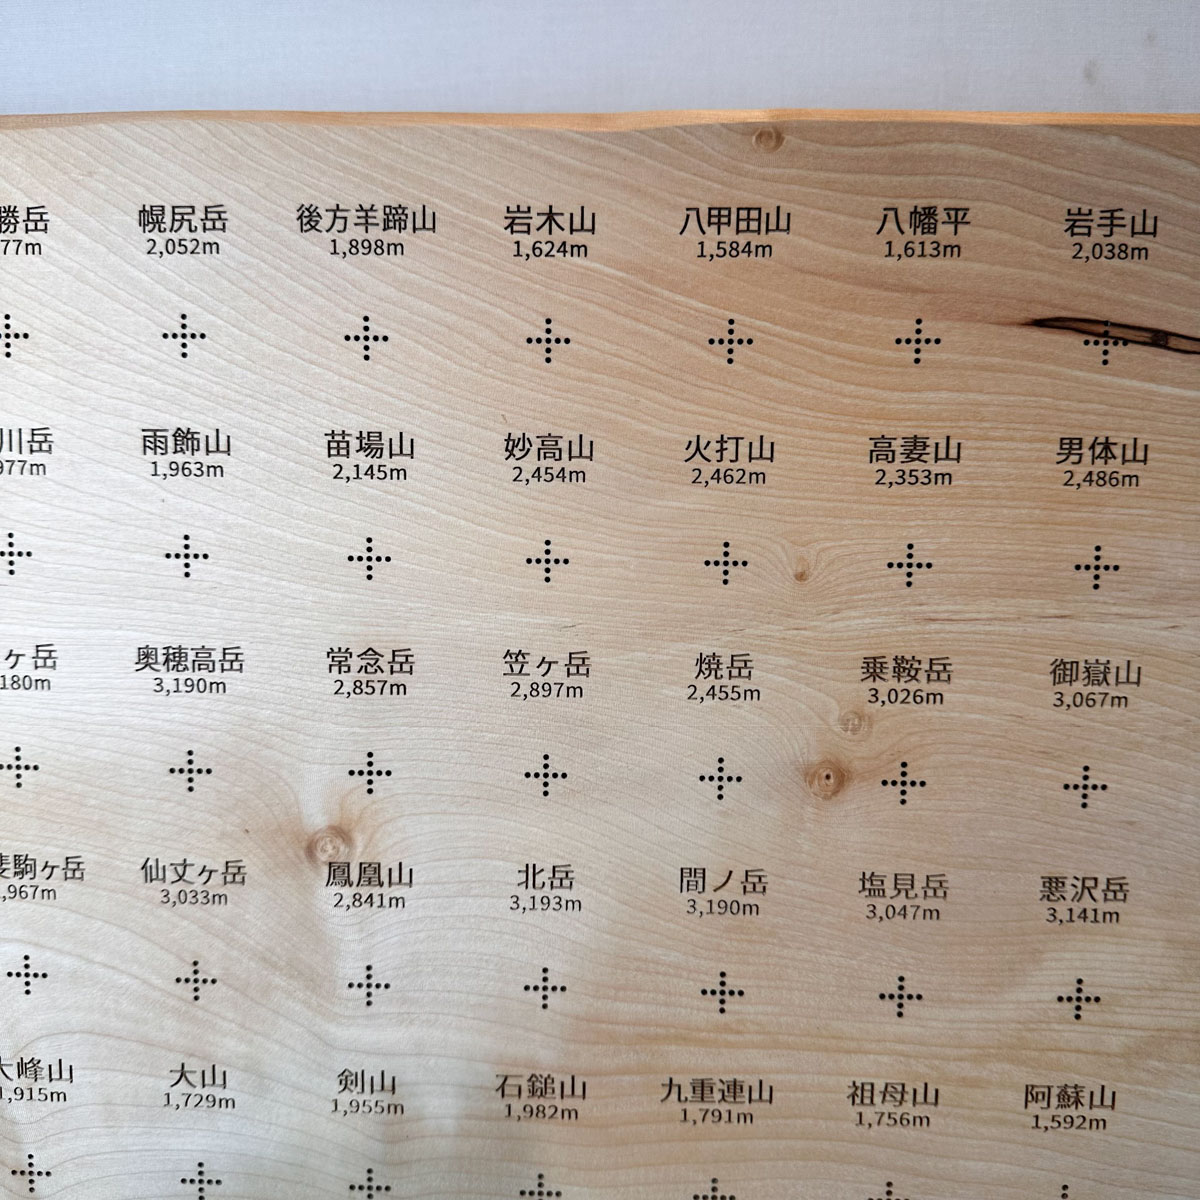 勝岳 幌尻岳 後方羊蹄山 岩木山 八甲田山 八幡平 岩手山
77m 2,052m 1,898m 1,624m 1,584m 1,613m 2,038m
川岳 雨飾山 苗場山 妙高山 火打山 高妻山 男体山
977m 1,963m 2,145m 2,454m 2,462m 2,353m 2,486m
ヶ岳 奥穂高岳 常念岳 笠ヶ岳 焼岳 乗鞍岳 御嶽山
180m 3,190m 2,857m 2,897m 2,455m 3,026m 3,067m
駒ヶ岳 仙丈ヶ岳 鳳凰山 北岳 間ノ岳 塩見岳 悪沢岳
,967m 3,033m 2,841m 3,193m 3,190m 3,047m 3,141m
大峰山 大山 剣山 石鎚山 九重連山 祖母山 阿蘇山
1,915m 1,729m 1,955m 1,982m 1,791m 1,756m 1,592m